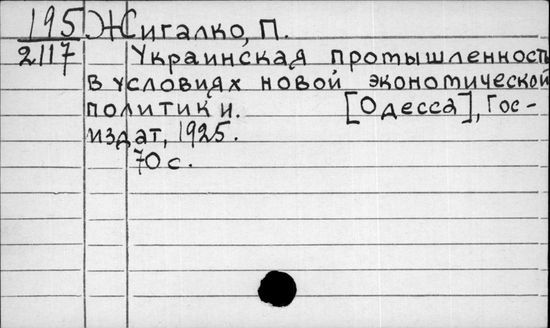 195 Жигалко, П.
2117 Украинская промышленность
в условиях новой экономической
политики. [Одесса], Гос-
издат, 1925.
70 с.